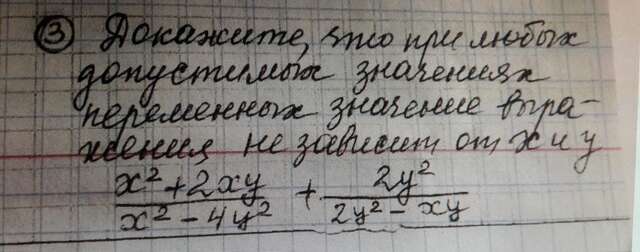 ③ Докажите, что при любых
допустимых значениях
переменных значение выра-
жения не зависит от x и y
(x² + 2xy)/(x² - 4y²) + 2y²/(2y² - xy)